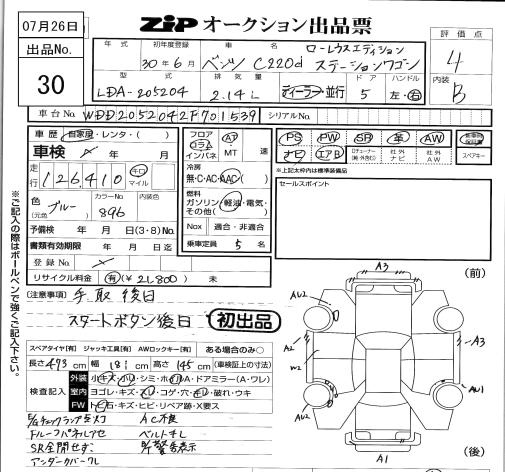 07月26日
ZiP オークション出品票
出品No.
30
年式
初年度登録
車名
30年6月
ベンツ C220d
ローレウスエディション
ステーションワゴン
評価点
4
内装
B
型式
排気量
ドア
ハンドル
LDA-205204
2.14L
ディーラー・並行
5
左・右
車台No.
WDD2052042F701539
シリアルNo.
車歴
自家用・レンタ・( )
車検
年 月
走行
126,410
キロ
マイル
色
(元色)
ブルー
カラーNo.
896
内装色
予備検 年 月 日(3・8)No.
書類有効期限 年 月 日迄
登録No.
リサイクル料金 有(¥21,800) 未
フロア
コラム
インパネ
AT
MT
速
冷房
無・C・AC・AAC
燃料
ガソリン・軽油・電気・
その他( )
Nox
適合・非適合
乗車定員 5 名
PS
PW
SR
革
AW
ナビ
エアB
社外
ナビ
社外
AW
スペアキー
※上記太枠内は標準装備品
セールスポイント
(注意事項) 手取後日
スタートボタン後日
初出品
スペアタイヤ[有] ジャッキ工具[有] AWロックキー[有] ある場合のみ○
長さ 473 cm 幅 181 cm 高さ 145 cm (車検証上の寸法)
検査記入
外装
室内
FW
E/gチェックランプ点灯
AC不良
Fルーフパネルアセ
SR全開せず
アンダーカバーワレ
A3
(前)
AU2
A2
W2
A3
AU2
AU1
A1
(後)
※ご記入の際はボールペンで強くご記入下さい。